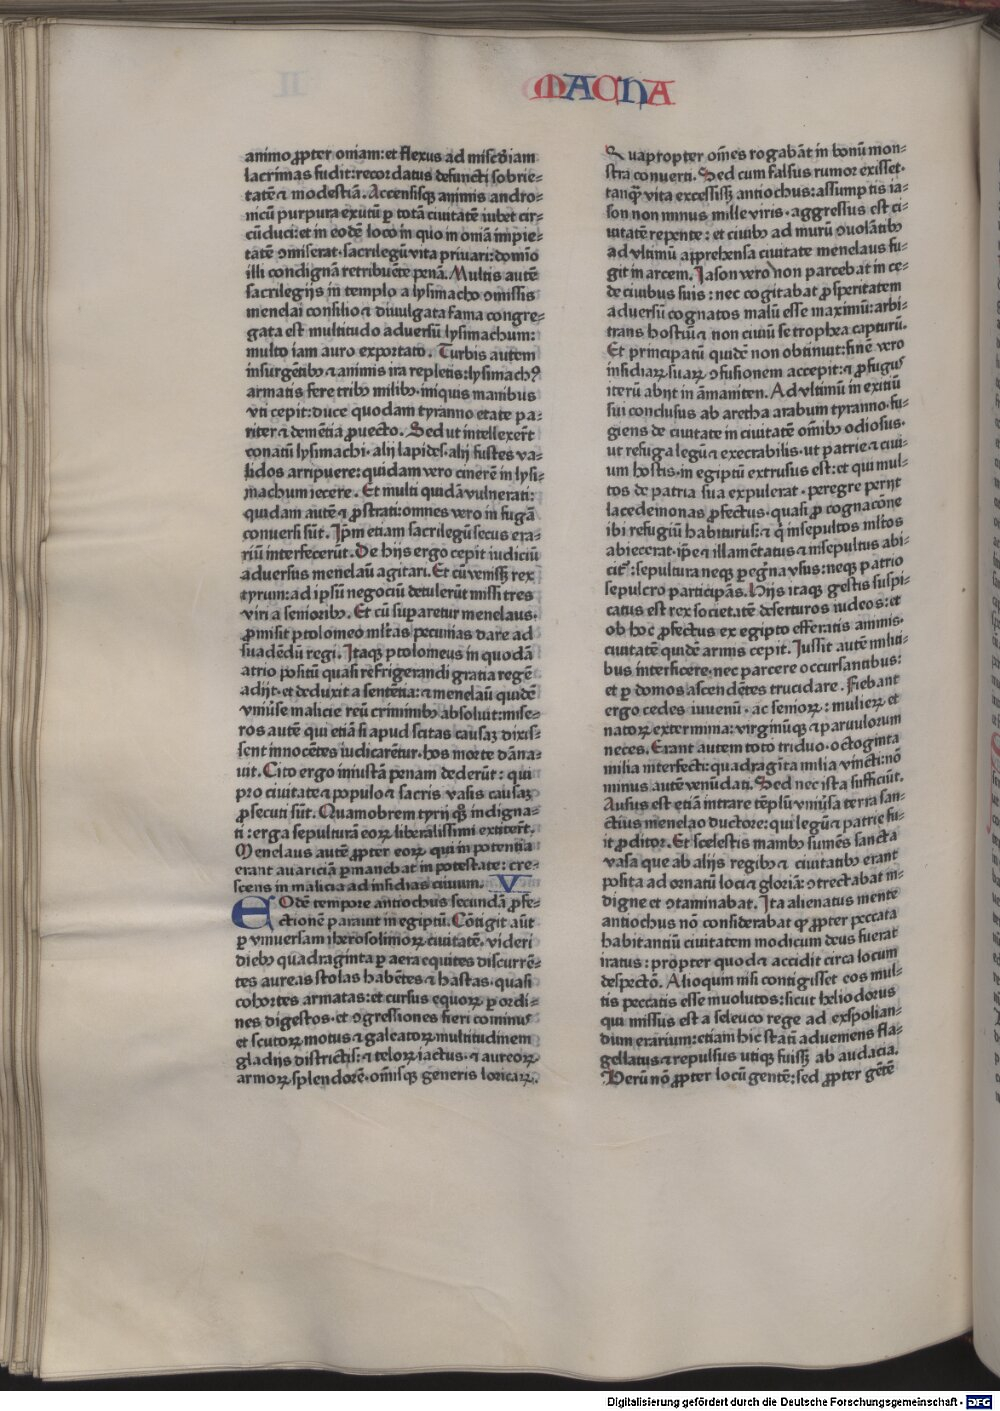 MACHA
animo ꝓpter oniam: et flexus ad miſcd̄iam
lacrimas fudit: recordatus defuncti ſobrie⸗
tatē ⁊ modeſtiā. Accenſiſqꝫ animis andro⸗
nicū purpura exutū ꝑ totā ciuitatē iubet cir⸗
cūduci: et in eodē loco in quo in oniā impie⸗
tatē ↄmiſerat· ſacrilegū vita priuari: domio
illi condignā retribuēte penā. Multis autē
ſacrilegijs in templo a lyſimacho ↄmiſſis
menelai conſilio ⁊ diuulgata fama congre⸗
gata eſt multitudo aduerſū lyſimachum:
multo iam auro exportato. Turbis autem
inſurgētibꝰ ⁊ animis ira repletis: lyſimachꝰ
armatis fere tribꝰ milibꝰ· iniquis manibus
vti cepit: duce quodam tyranno etate pa⸗
riter ⁊ demētia ꝓuecto. Sed ut intellexer̄t
conatū lyſimachi· alij lapides· alij fuſtes va⸗
lidos arripuere: quidam vero cinerē in lyſi⸗
machum iecere. Et multi quidā vulnerati:
quidam autē ⁊ ꝓſtrati: omnes vero in fugā
conuerſi ſūt. Ip̄m etiam ſacrilegū ſecus era⸗
riū interfecerūt. De hijs ergo cepit iudiciū
aduerſus menelaū agitari. Et cū veniſſꝫ rex
tyrum: ad ipſū negociū detulerūt miſſi tres
viri a ſenioribꝰ. Et cū ſuꝑaretur menelaus·
ꝓmiſit ptolomeo ml̄tas pecunias dare ad
ſuadēdū regi. Itaqꝫ ptolomeus in quodā
atrio poſitū quaſi refrigerandi gratia regē
adijt· et deduxit a ſententia: ⁊ menelaū quidē
vniuſe malicie reū criminibꝰ abſoluit: miſe⸗
ros autē qui etiā ſi apud ſcitas cauſaꝫ dixiſ⸗
ſent innocētes iudicarētur· hos morte dāna⸗
uit. Cito ergo iniuſtā penam dederūt: qui
pro ciuitate ⁊ populo ⁊ ſacris vaſis cauſaꝫ
ꝓſecuti ſūt. Quamobrem tyrij qꝫ indigna⸗
ti: erga ſepulturā eoꝝ liberaliſſimi extiter̄t.
Menelaus autē ꝓpter eoꝝ qui in potentia
erant auariciā ꝑmanebat in poteſtate: cre⸗
ſcens in malicia ad inſidias ciuium. V
EOdē tempore antiochus ſecundā ꝓfe⸗
ctionē parauit in egiptū. Cōtigit aūt
ꝑ vniuerſam iheroſolimoꝝ ciuitatē· videri
diebꝰ quadraginta ꝑ aera equites diſcurrē⸗
tes aureas ſtolas habētes ⁊ haſtas· quaſi
cohortes armatas: et curſus equoꝝ ꝑ ordi⸗
nes digeſtos· et ↄgreſſiones fieri cominus
et ſcutoꝝ motus ⁊ galeatoꝝ multitudinem
gladijs diſtrictis: ⁊ teloꝝ iactus· ⁊ aureoꝝ
armoꝝ ſplendorē· om̄iſqꝫ generis loricaꝝ.
Quapropter om̄es rogabāt in bonū mon⸗
ſtra conuerti. Sed cum falſus rumor exiſſet·
tanqꝫ vita exceſſiſſꝫ antiochus: aſſumptis ia⸗
ſon non minus mille viris· aggreſſus eſt ci⸗
uitatē repente: et ciuibꝰ ad murū ↄuolātibꝰ
ad vltimū apprehenſa ciuitate menelaus fu⸗
git in arcem. Iaſon vero non parcebat in ce⸗
de ciuibus ſuis: nec cogitabat ꝓſperitatem
aduerſū cognatos malū eſſe maximū: arbi⸗
trans hoſtiū ⁊ non ciuiū ſe trophea capturū.
Et principatū quidē non obtinuit: finē vero
inſidiaꝝ ſuaꝝ ↄfuſionem accepit: ⁊ ꝓfugus
iterū abijt in āmaniten. Ad vltimū in exitiū
ſui concluſus ab aretha arabum tyranno· fu⸗
giens de ciuitate in ciuitatē om̄ibꝰ odioſus·
ut refuga legū ⁊ execrabilis· ut patrie ⁊ ciui⸗
um hoſtis· in egiptū extruſus eſt: et qui mul⸗
tos de patria ſua expulerat· peregre perijt
lacedemonas ꝓfectus· quaſi ꝓ cognacōne
ibi refugiū habiturus: ⁊ q̄ inſepultos ml̄tos
abiecerat· ip̄e ⁊ illamētatus ⁊ inſepultus abi⸗
cit᷑: ſepultura neqꝫ ꝑegͥna vſus: neqꝫ patrio
ſepulcro participās. Hijs itaqꝫ geſtis ſuſpi⸗
catus eſt rex ſocietatē deſerturos iudeos: et
ob hoc ꝓfectus ex egipto efferatis animis·
ciuitatē quidē armis cepit. Iuſſit autē militi⸗
bus interficere· nec parcere occurſantibus:
et ꝑ domos aſcendētes trucidare. Fiebant
ergo cedes iuuenū· ac ſenioꝝ: mulieꝝ et
natoꝝ extermina: virginūqꝫ ⁊ paruulorum
neces. Erant autem toto triduo· octoginta
milia interfecti: quadragīta milia vincti: nō
minus autē venūdati. Sed nec iſta ſufficiūt.
Auſus eſt etiā intrare tēplū vniūſa terra ſan⸗
ctius menelao ductore: qui legū ⁊ patrie fu⸗
it ꝓditor. Et ſceleſtis manibꝰ ſumēs ſancta
vaſa que ab alijs regibꝰ ⁊ ciuitatibꝰ erant
poſita ad ornatū loci ⁊ gloriā: ↄtrectabat in⸗
digne et ↄtaminabat. Ita alienatus mente
antiochus nō conſiderabat qꝫ ꝓpter peccata
habitantiū ciuitatem modicum deus fuerat
iratus: propter quod ⁊ accidit circa locum
deſpectō. Alioquin niſi contigiſſet eos mul⸗
tis peccatis eſſe inuolutos: ſicut heliodorus
qui miſſus eſt a ſeleuco rege ad exſpolian⸗
dum erarium: etiam hic ſtatī adueniens fla⸗
gellatus ⁊ repulſus utiqꝫ fuiſſꝫ ab audacia.
Verū nō ꝓpter locū gentē: ſed ꝓpter gētē
Digitalisierung gefördert durch die Deutsche Forschungsgemeinschaft - DFG